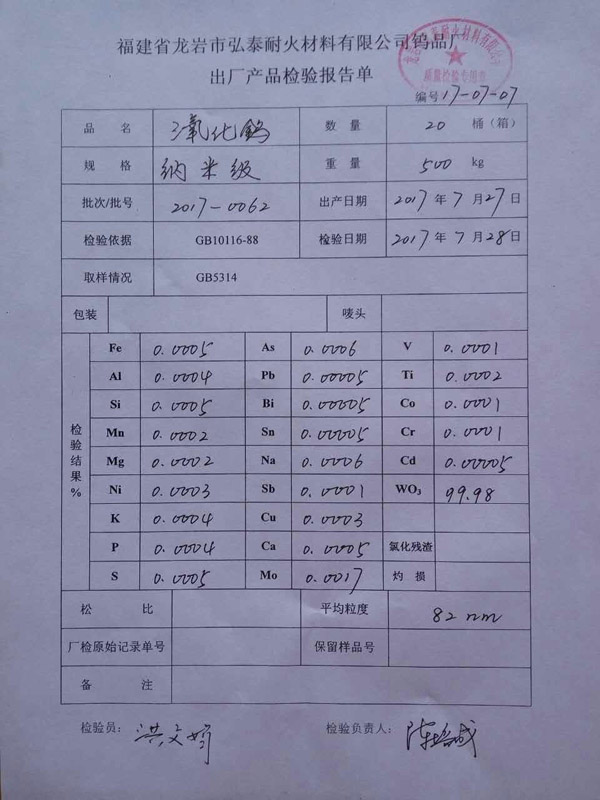 福建省龙岩市弘泰耐火材料有限公司钨品厂
出厂产品检验报告单
质量检验专用章
编号 17-07-07
品 名 三氧化鎢 数 量 20 桶（箱）
规 格 纳米级 重 量 500 kg
批次/批号 2017-0062 出产日期 2017年7月27日
检验依据 GB10116-88 检验日期 2017年7月28日
取样情况 GB5314
包装 唛头
检验结果%
Fe 0.0005 As 0.0006 V 0.0001
Al 0.0004 Pb 0.00005 Ti 0.0002
Si 0.0005 Bi 0.00005 Co 0.0001
Mn 0.0002 Sn 0.00005 Cr 0.0001
Mg 0.0002 Na 0.0006 Cd 0.00005
Ni 0.0003 Sb 0.0001 WO₃ 99.98
K 0.0004 Cu 0.0003
P 0.0004 Ca 0.0005 氯化残渣
S 0.0005 Mo 0.0017 灼 损
松 比 平均粒度 82 nm
厂检原始记录单号 保留样品号
备 注
检验员： 洪文 检验负责人： 陈